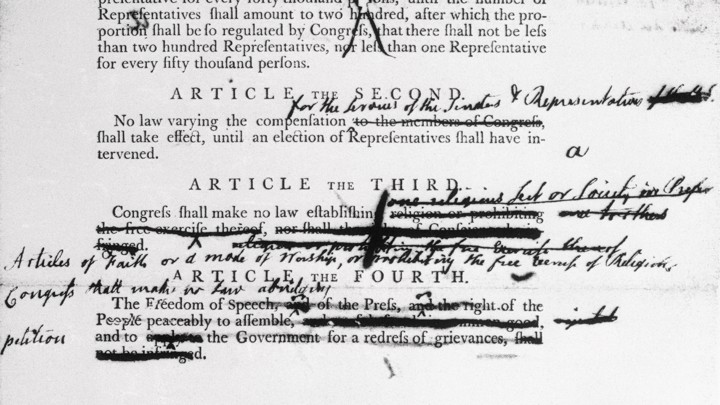 preſentative for every forty thouſand perſons, until the number of
Repreſentatives ſhall amount to two hundred, after which the pro-
portion ſhall be ſo regulated by Congreſs, that there ſhall not be leſs
than two hundred Repreſentatives, nor leſs than one Repreſentative
for every fifty thouſand perſons.
ARTICLE THE SECOND.
for the ſervices of the Senators & Repreſentatives
No law varying the compenſation to the members of Congreſs,
ſhall take effect, until an election of Repreſentatives ſhall have in-
tervened.
a
ARTICLE THE THIRD.
one religious ſect or Society in
Congreſs ſhall make no law eſtabliſhing religion or prohibiting
the free exerciſe thereof, nor ſhall the of Conſcience
fringed.
religion or prohibiting the free Exerciſe thereof
Articles of Faith or a mode of Worship, or prohibiting the free exerciſe of Religion,
ARTICLE THE FOURTH.
Congreſs ſhall make no law abridging
The Freedom of Speech, and of the Preſs, and the right of the
People peaceably to aſſemble, common good,
petition
and to apply to the Government for a redreſs of grievances, ſhall
not be infringed.